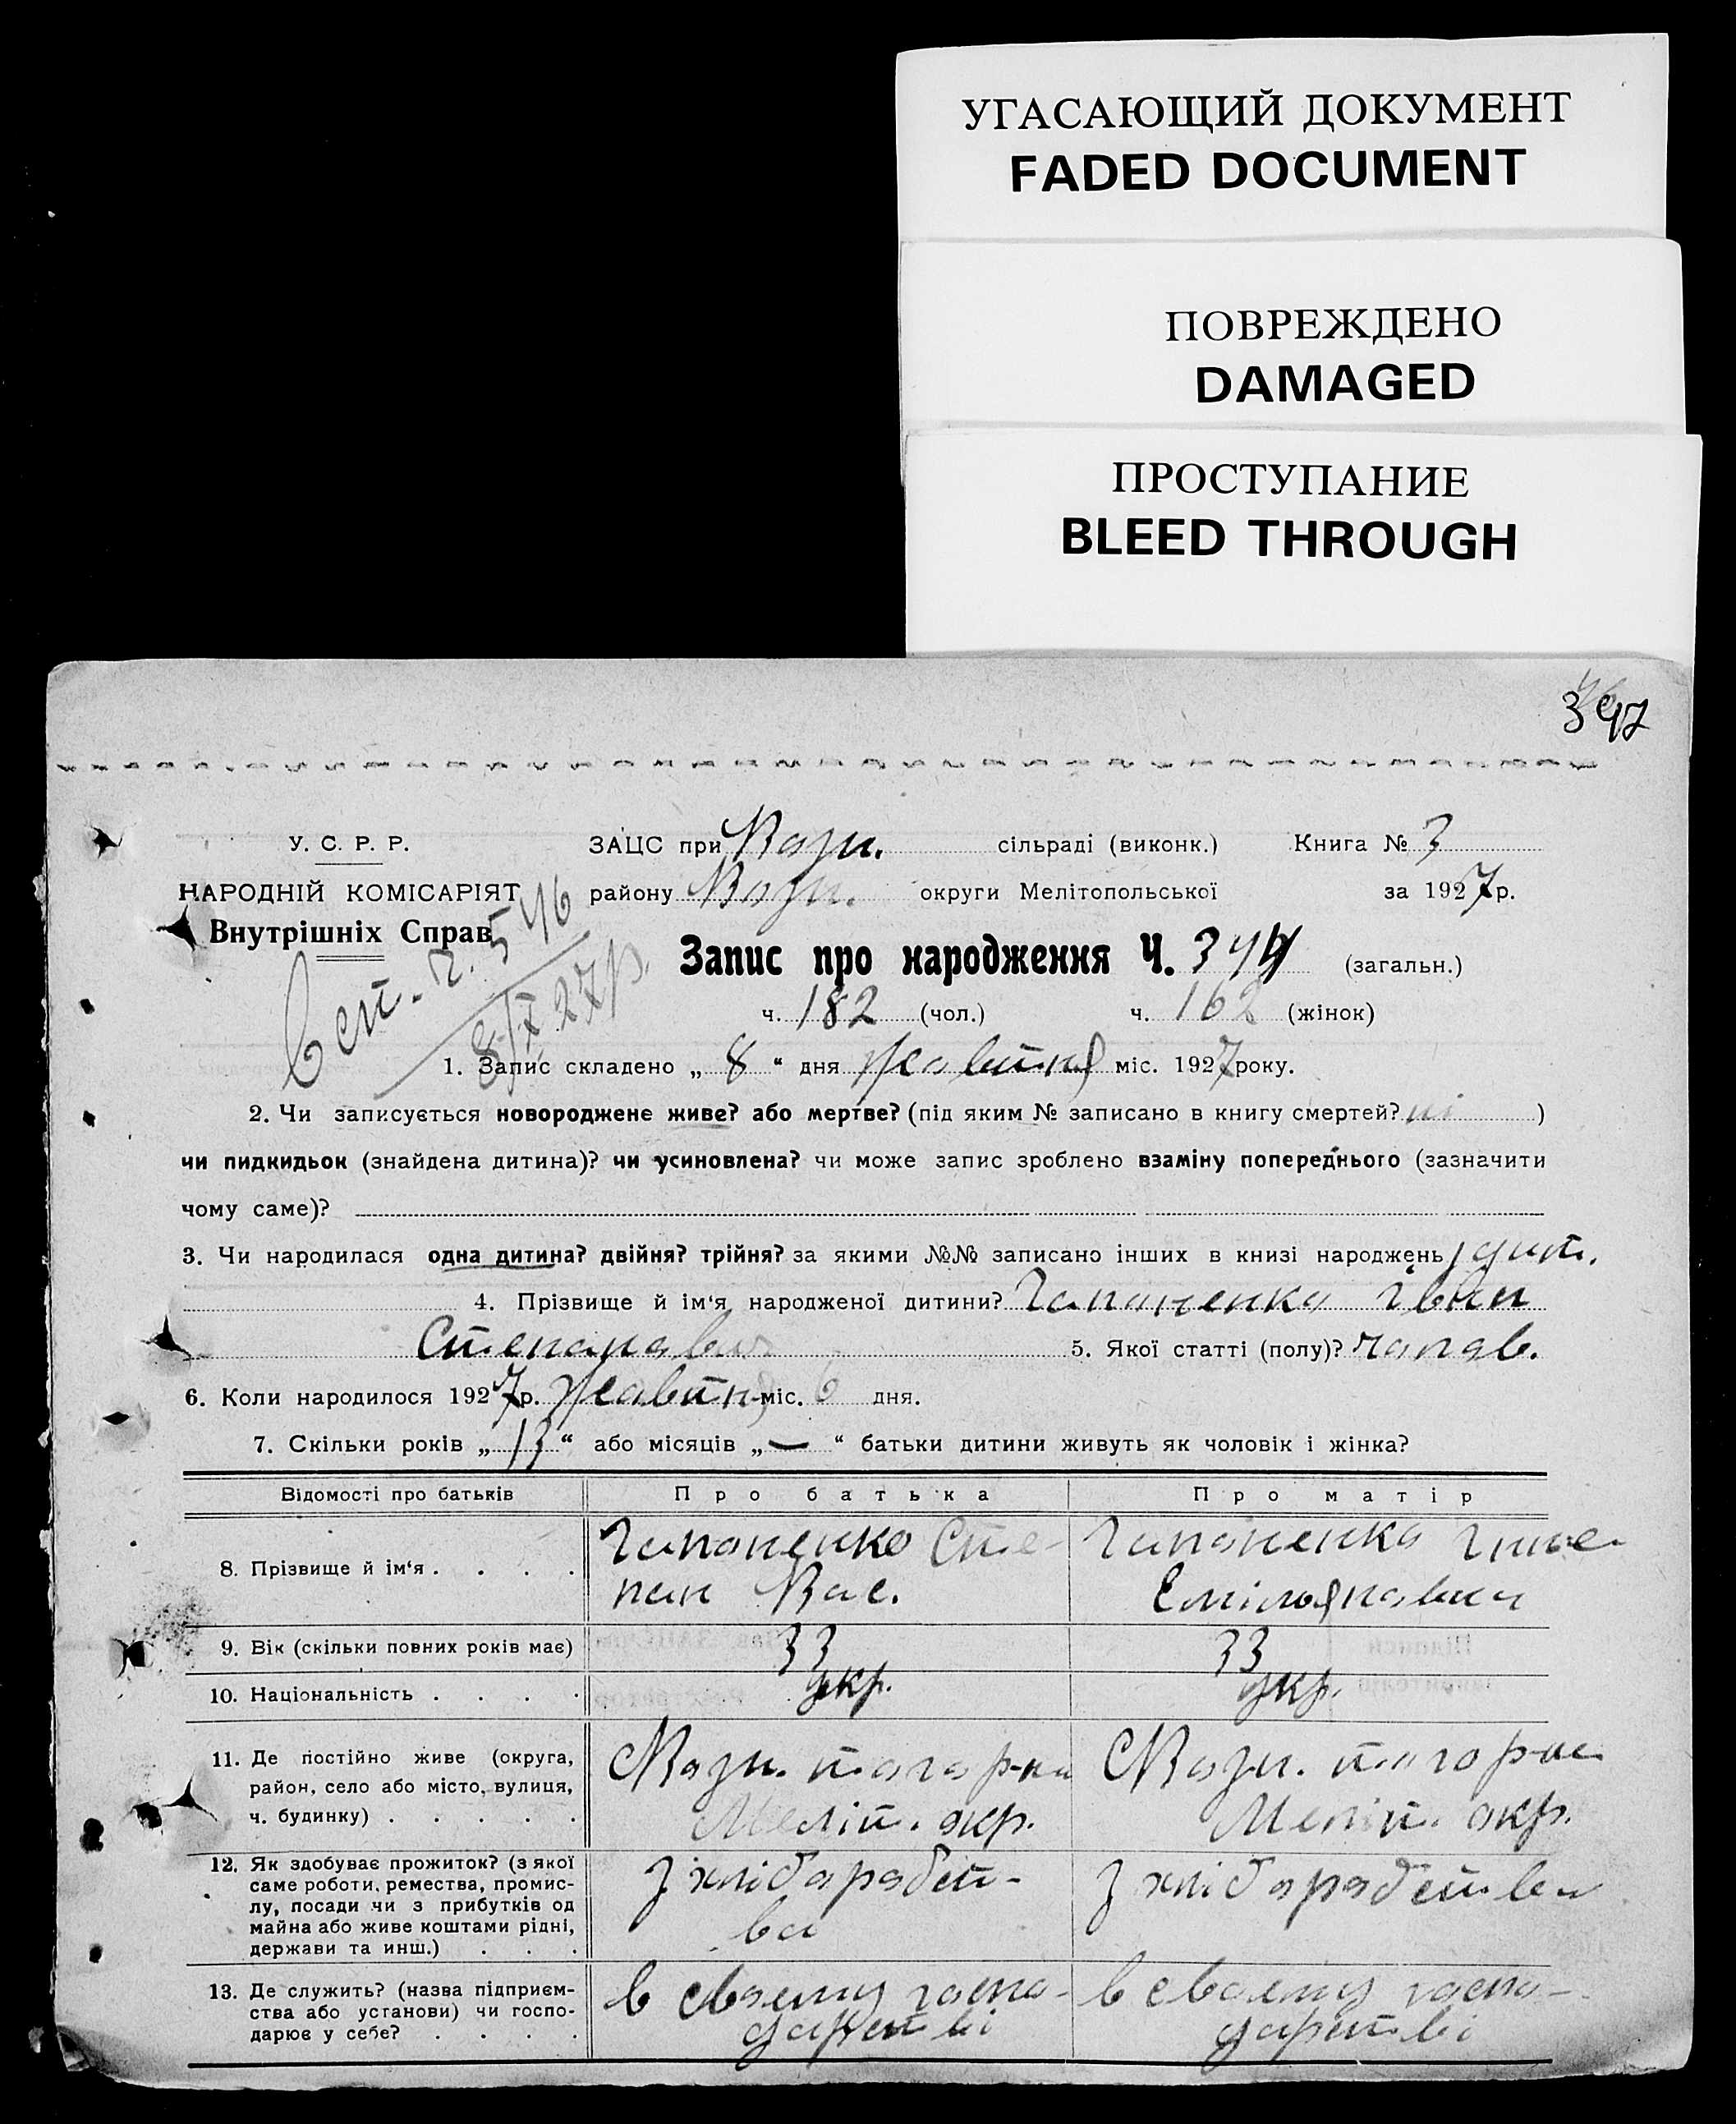 УГАСАЮЩИЙ ДОКУМЕНТ
FADED DOCUMENT
ПОВРЕЖДЕНО
DAMAGED
ПРОСТУПАНИЕ
BLEED THROUGH
У. С. Р. Р.
НАРОДНІЙ КОМІСАРІЯТ
Внутрішніх Справ
ЗАЦС при Возн. сільраді (виконк.) Книга № 3
району Возн. округи Мелітопольської за 1927 р.
546
8/X 27 р.
Запис про народження Ч. 344 (загальн.)
ч. 182 (чол.) ч. 162 (жінок)
1. Запис складено „ 8 “ дня жовтня міс. 1927 року.
2. Чи записується новороджене живе? або мертве? (під яким № записано в книгу смертей? ні )
чи пидкидьок (знайдена дитина)? чи усиновлена? чи може запис зроблено взаміну попереднього (зазначити
чому саме)?
3. Чи народилася одна дитина? двійня? трійня? за якими №№ записано інших в книзі народжень 1 дит.
4. Прізвище й ім‘я народженої дитини? Гапоненко Іван
Степанович 5. Якої статті (полу)? чолов.
6. Коли народилося 1927 р. жовтня міс. 6 дня.
7. Скільки років „ 13 “ або місяців „ — “ батьки дитини живуть як чоловік і жінка?
Відомості про батьків Про батька Про матір
8. Прізвище й ім‘я . . . . Гапоненко Сте-
пан Вас.
Гапоненко
Еміляновна
9. Вік (скільки повних років має) 33 33
10. Національність . . . . укр. укр.
11. Де постійно живе (округа,
район, село або місто, вулиця,
ч. будинку) . . . . .
Возн. того р-на
Меліт. окр.
Возн. того р-на
Меліт. окр.
12. Як здобуває прожиток? (з якої
саме роботи, ремества, промис-
лу, посади чи з прибутків од
майна або живе коштами рідні,
держави та инш.) . . .
З хліборобст-
ва
З хліборобства
13. Де служить? (назва підприєм-
ства або установи) чи госпо-
дарює у себе? . . . .
в своєму госпо-
дарстві
в своєму госпо-
дарстві